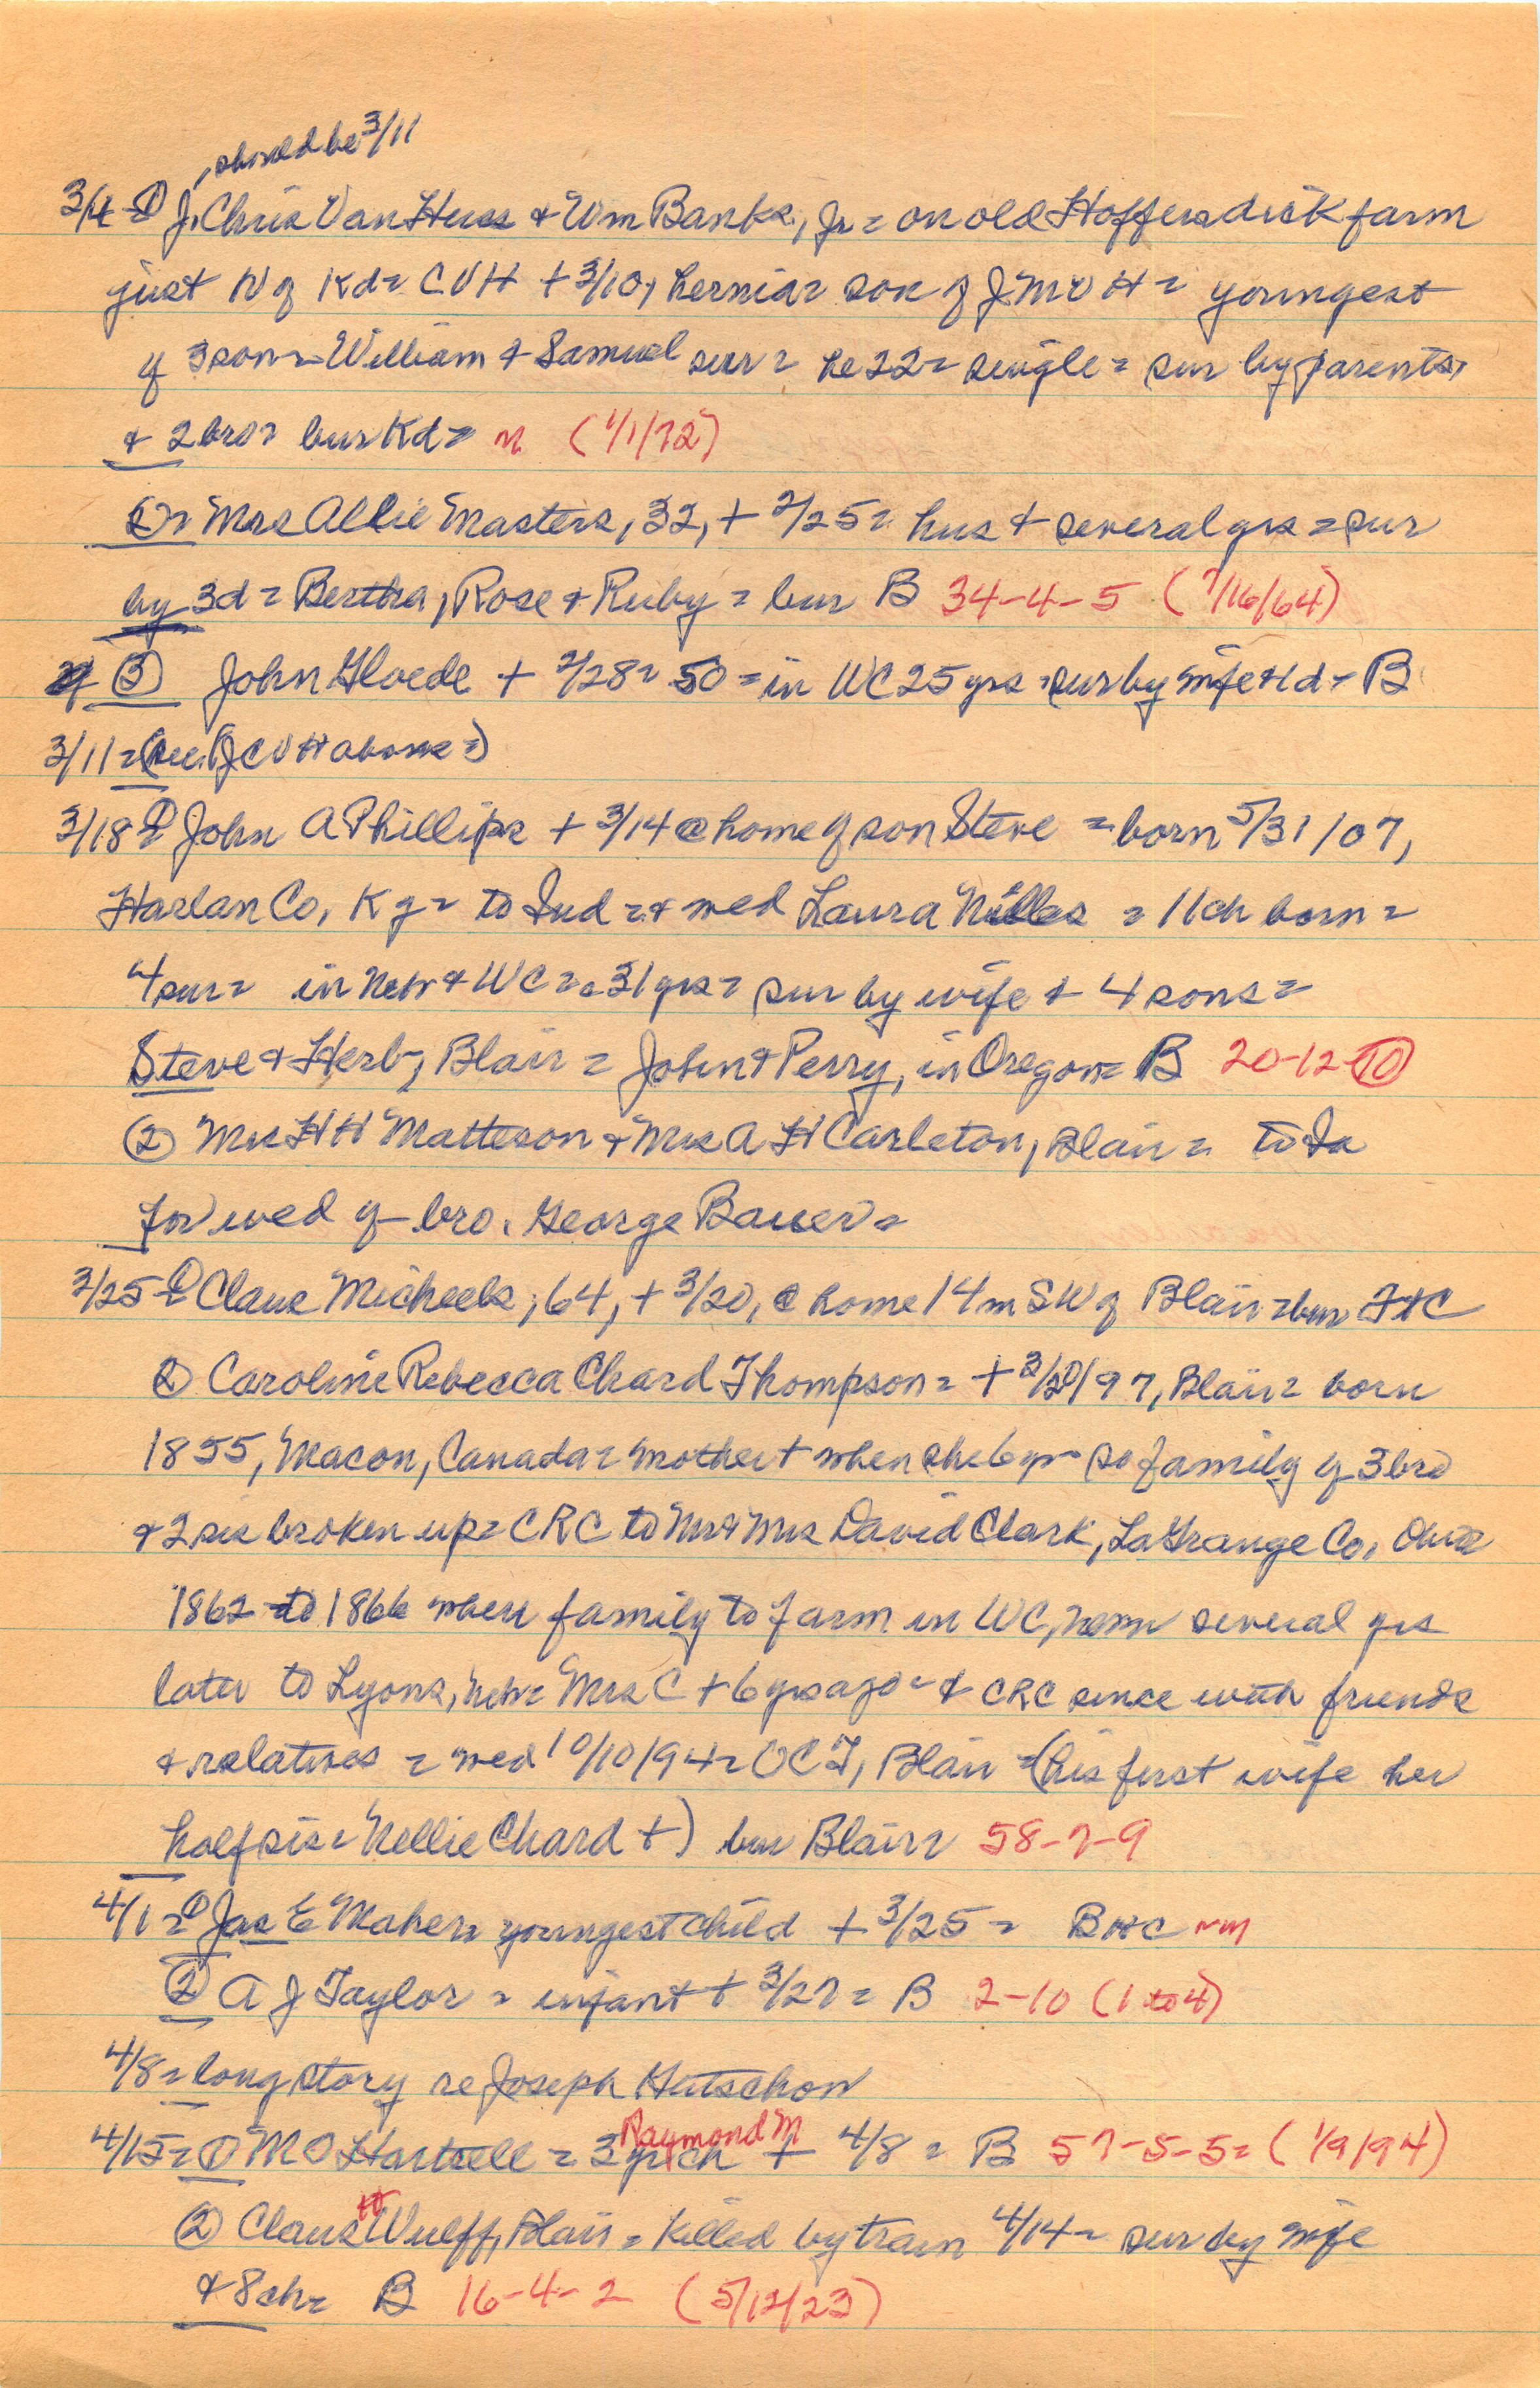 should be 3/11
3/4 = ① J. Chris Van Huss & Wm Banks, Jr = on old Hoffersdick farm
just N of Kd = CVH + 3/10, hernia = son of JMVH = youngest
of 3 sons = William & Samuel sur = he 22 = single = sur by parents,
& 2 bro = bur Kd = n (1/1/72)
② = Mrs Allie Masters, 32, + 2/25 = hus + several yrs = sur
by 3d = Bertha, Rose & Ruby = bur B 34-4-5 (7/16/64)
③ John Gloede + 2/28 = 50 = in WC 25 yrs = sur by wife & 1d = B
3/11 = (see JCVH above =)
3/18 = ① John A Phillips + 3/14 @ home of son Steve = born 5/31/07,
Harlan Co, Ky = to Ind = & wed Laura = 11 ch born =
4 sur = in Neb & WC = c 31 yrs = sur by wife & 4 sons =
Steve & Herb, Blair = John & Perry, in Oregon = B 20-12-10
② Mrs HH Matteson & Mrs A H Carleton, Blair = to Ia
for wed of bro. George Bauer =
3/25 = ① Claus Micheels, 64, + 3/20, @ home 14 m SW of Blair = bur
② Caroline Rebecca Chard Thompson = + 3/20/97, Blair = born
1855, Macon, Canada = mother + when she 6 yr = so family of 3 bro
& 2 sis broken up = CRC to Mr & Mrs David Clark, LaGrange Co,
1862 to 1866 when family to farm in WC, Nebr several yrs
later to Lyons, Neb = Mrs C + 6 yrs ago = & CRC since with friends
& relatives = wed 10/10/94 = OCT, Blair = (his first wife her
half sis = Nellie Chard +) bur Blair = 58-7-9
4/1 = ① Jas E Maher = youngest child + 3/25 = B
② A J Taylor = infant + 3/27 = B 2-10 (1 to 4)
4/8 = long story re Joseph Hutschow
4/15 = ① M O Hartsell = 3 yr ch Raymond M + 4/8 = B 57-5-5 = (1/9/94)
② Claus H Wulff, Blair = killed by train 4/14 = sur by wife
& 8 ch = B 16-4-2 (5/12/23)